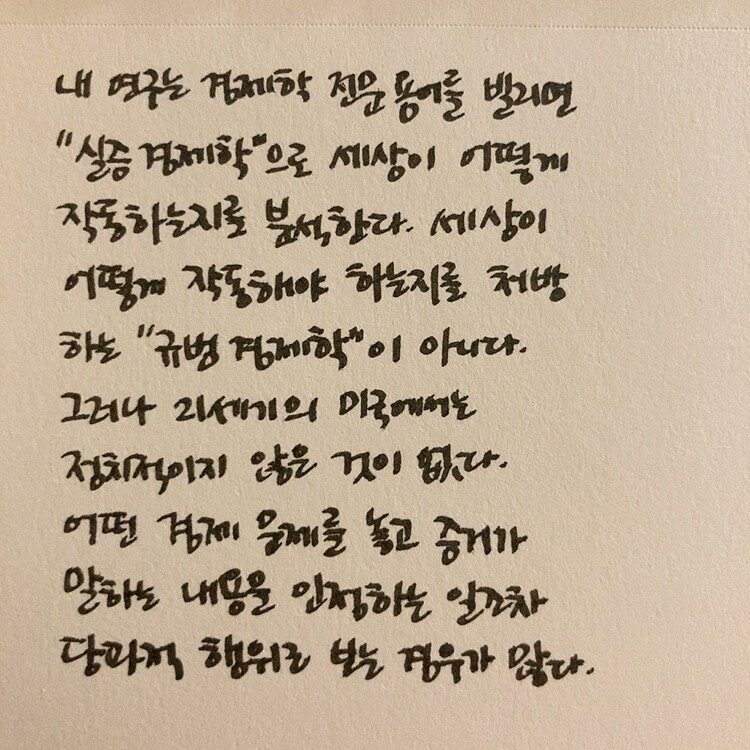 내 연구는 경제학 전문 용어를 빌리면
"실증 경제학"으로 세상이 어떻게
작동하는지를 분석한다. 세상이
어떻게 작동해야 하는지를 처방
하는 "규범 경제학"이 아니다.
그러나 21세기의 미국에서는
정치적이지 않은 것이 없다.
어떤 경제 문제를 놓고 증거가
말하는 내용을 인정하는 일조차
당파적 행위로 보는 경우가 많다.